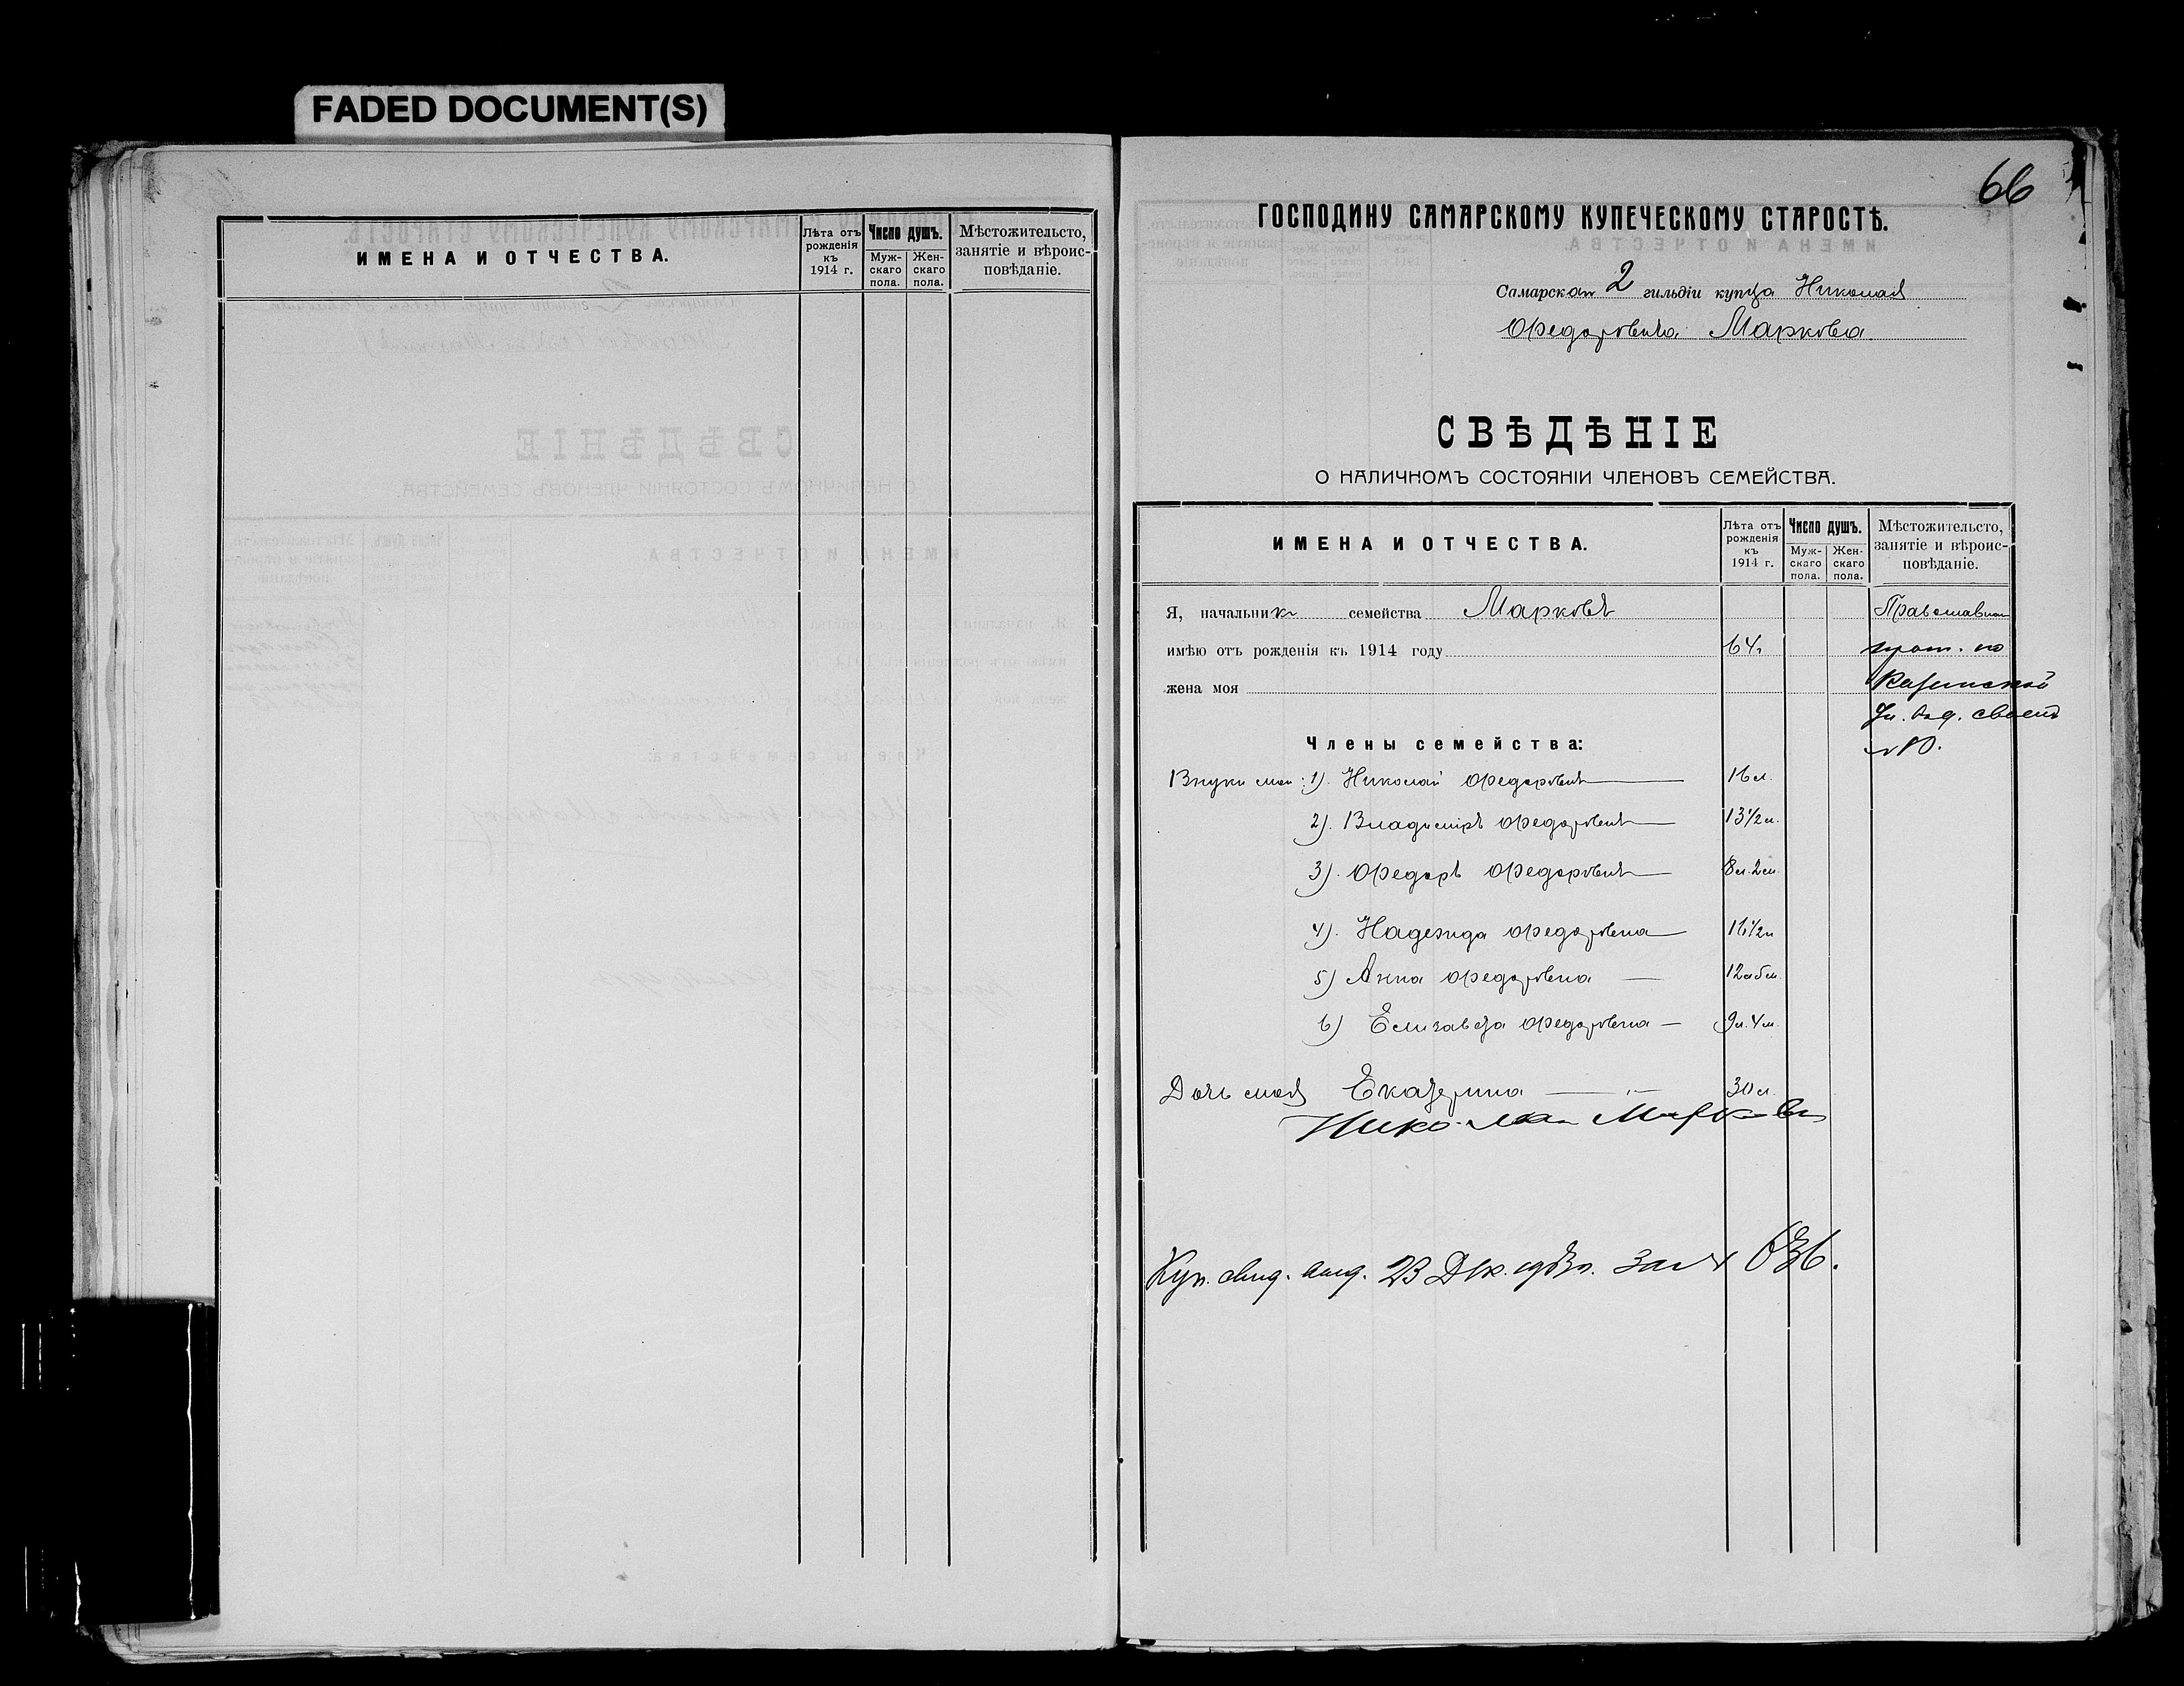 FADED DOCUMENT(S)
ИМЕНА И ОТЧЕСТВА.
Лѣта отъ рожденія къ 1914 г.
Число душъ.
Муж-скаго пола.
Жен-скаго пола.
Мѣстожительсто, занятіе и вѣроис-повѣданіе.
66
ГОСПОДИНУ САМАРСКОМУ КУПЕЧЕСКОМУ СТАРОСТѢ.
Самарскаго 2 гильдіи купца Николая
Федоровича Маркова
СВѢДѢНІЕ
О НАЛИЧНОМЪ СОСТОЯНІИ ЧЛЕНОВЪ СЕМЕЙСТВА.
ИМЕНА И ОТЧЕСТВА.
Лѣта отъ рожденія къ 1914 г.
Число душъ.
Муж-скаго пола.
Жен-скаго пола.
Мѣстожительсто, занятіе и вѣроис-повѣданіе.
Я, начальникъ семейства Марковъ
имѣю отъ рожденія къ 1914 году 64
жена моя
Члены семейства:
Внуки мои: 1). Николай Федоровичъ 16 л.
2). Владиміръ Федоровичъ 13 1/2 л.
3). Федоръ Федоровичъ 8 л. 2 м.
4). Надежда Федоровна
5) Анна Федоровна 12 л 5 м.
6) Елизавета Федоровна 9 л. 4 м.
Дочь моя Екатерина 30 л.
Николай Марковъ
Православн
прож. по
Казанской
Ул. соб.
Куп. свид. выд. 23 Дек. 1913 г. за №